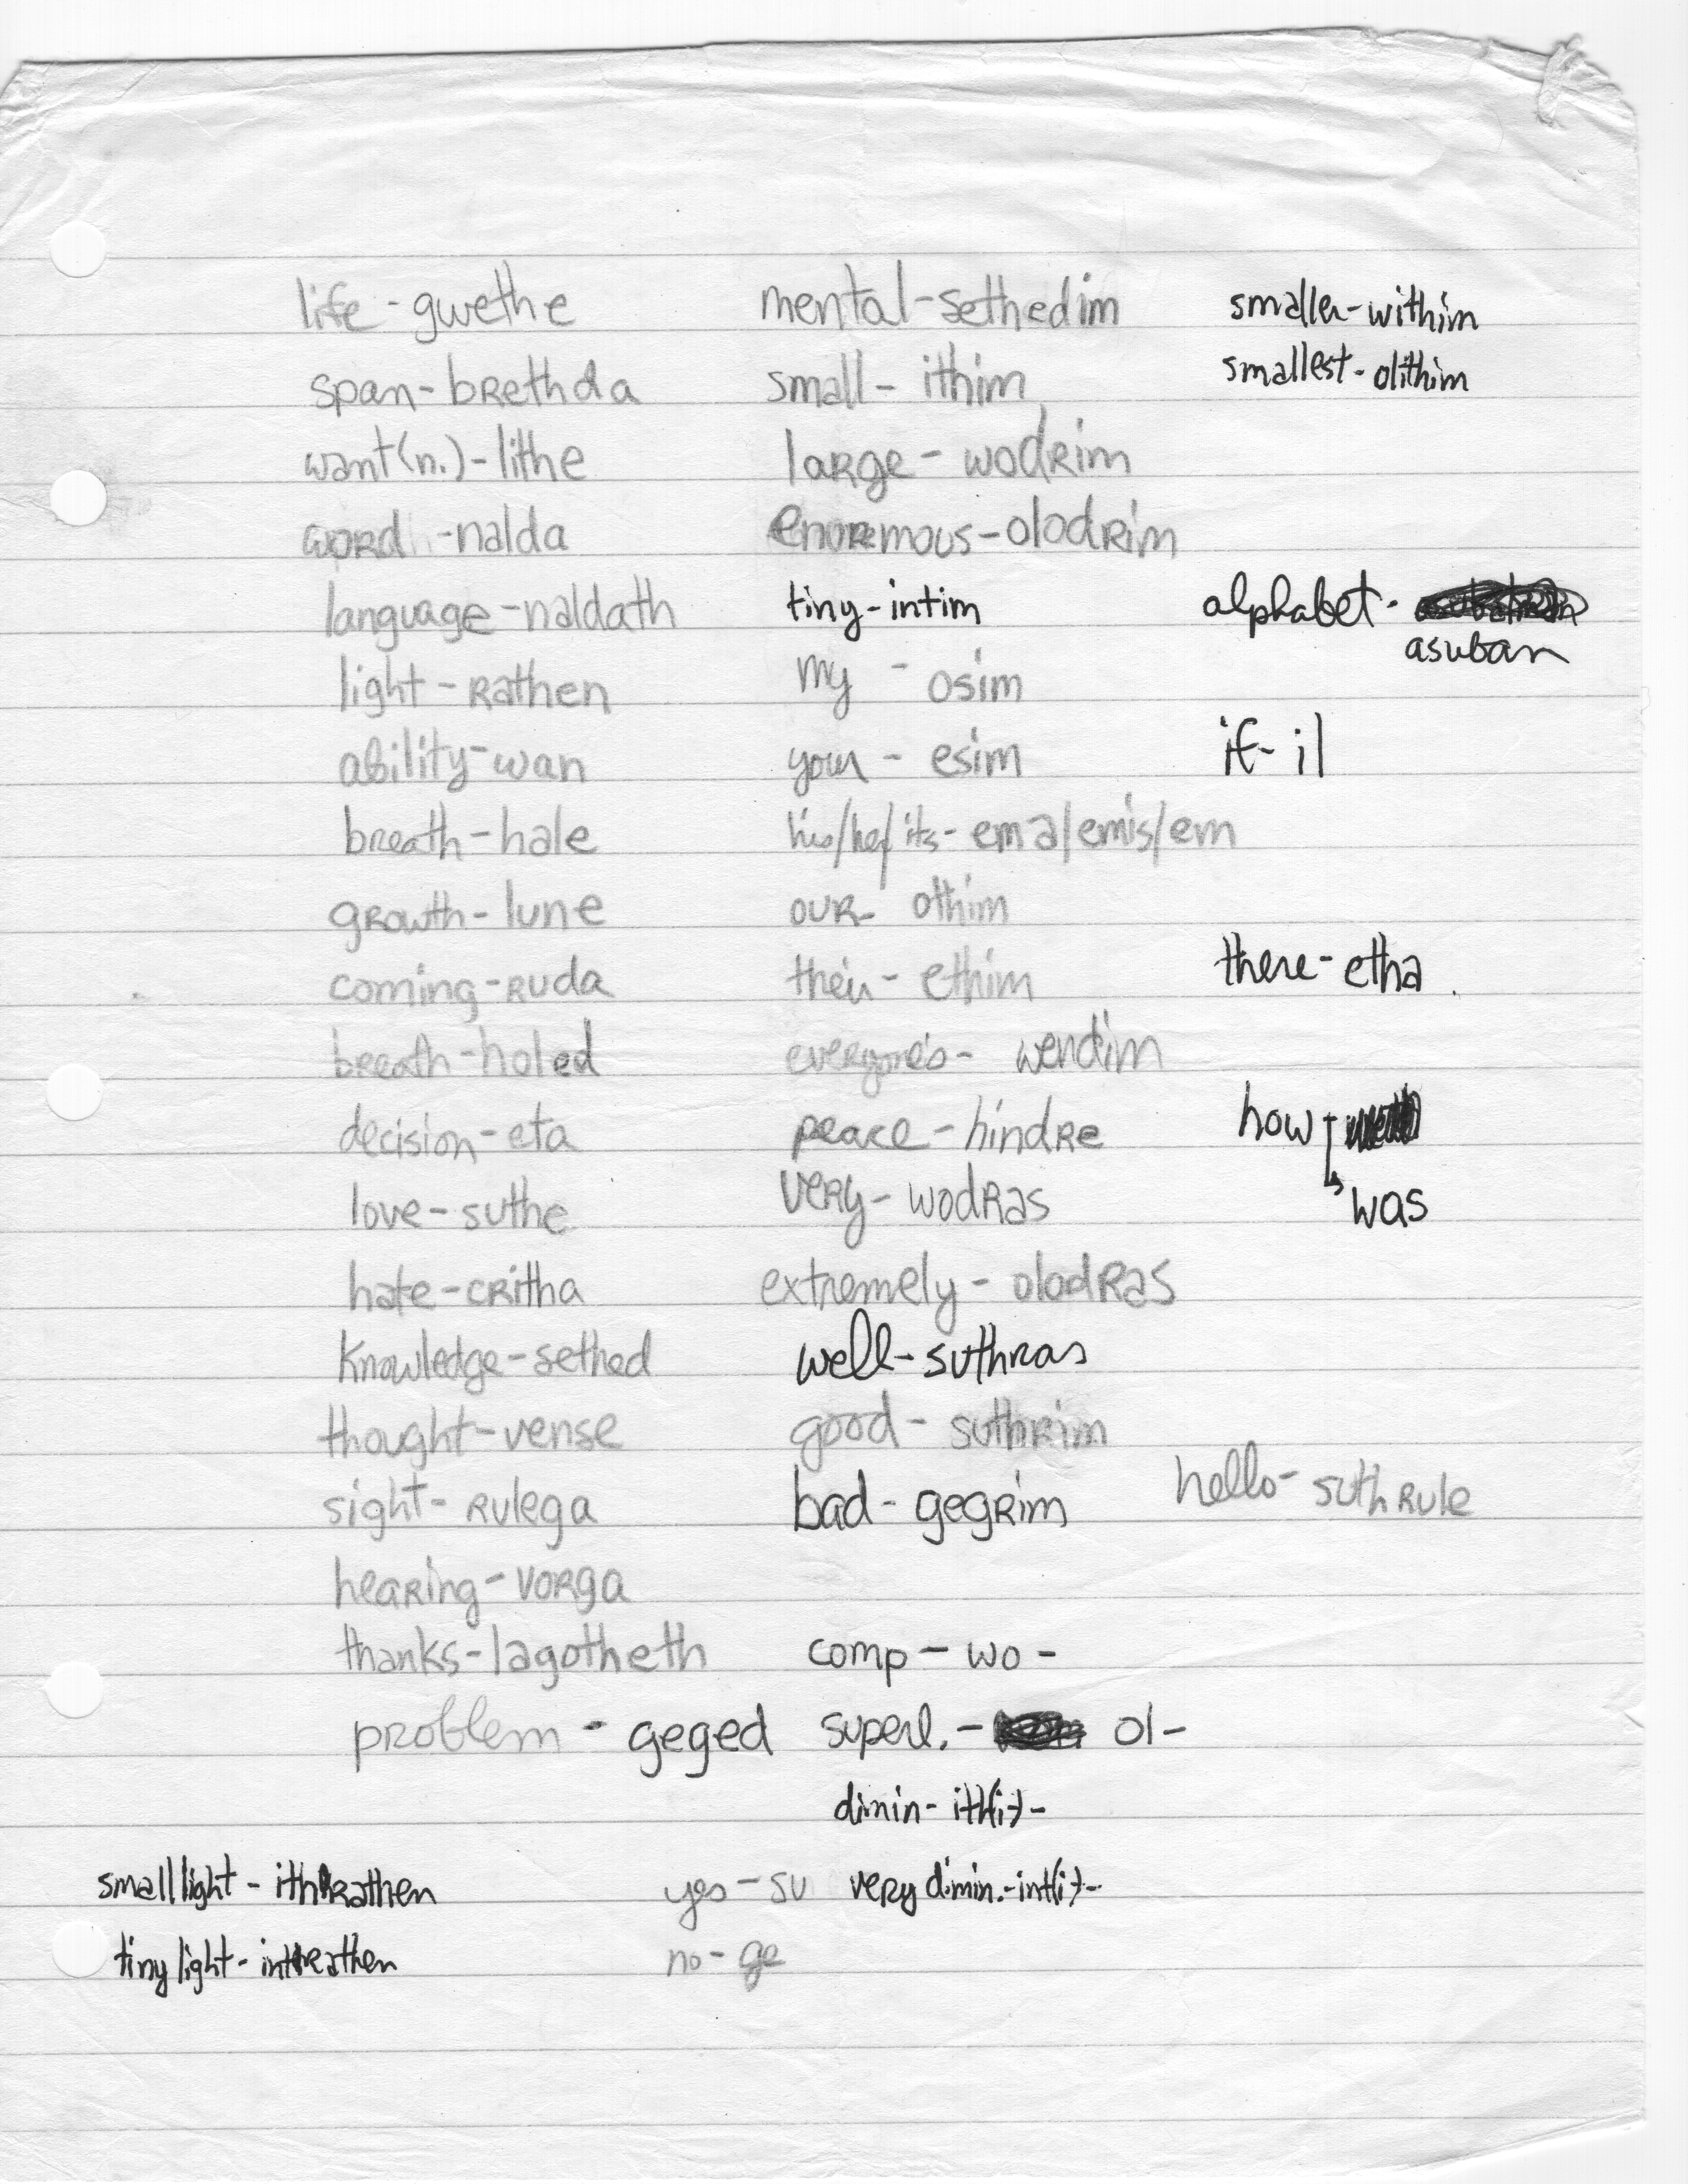 life - gwethe
span - brethda
want (n.) - lithe
word - nalda
language - naldath
light - rathen
ability - wan
breath - hale
growth - lune
coming - ruda
breath - holed
decision - eta
love - suthe
hate - critha
knowledge - sethed
thought - vense
sight - rulega
hearing - vorga
thanks - lagotheth
problem - geged
small light - ithrathen
tiny light - intrathen
mental - sethedim
small - ithim
large - wodrim
enormous - olodrim
tiny - intim
my - osim
your - esim
his/her/its - ema/emis/em
our - othim
their - ethim
everyone's - wendim
peace - hindre
very - wodras
extremely - olodras
well - suthras
good - suthrim
bad - gegrim
comp - wo -
superl. - ol -
dimin - ith(i-) -
yes - su
very dimin. - int(i-) -
no - ge
smaller - withim
smallest - olithim
alphabet -
asuban
if - il
there - etha
how -
was
hello - suthrule